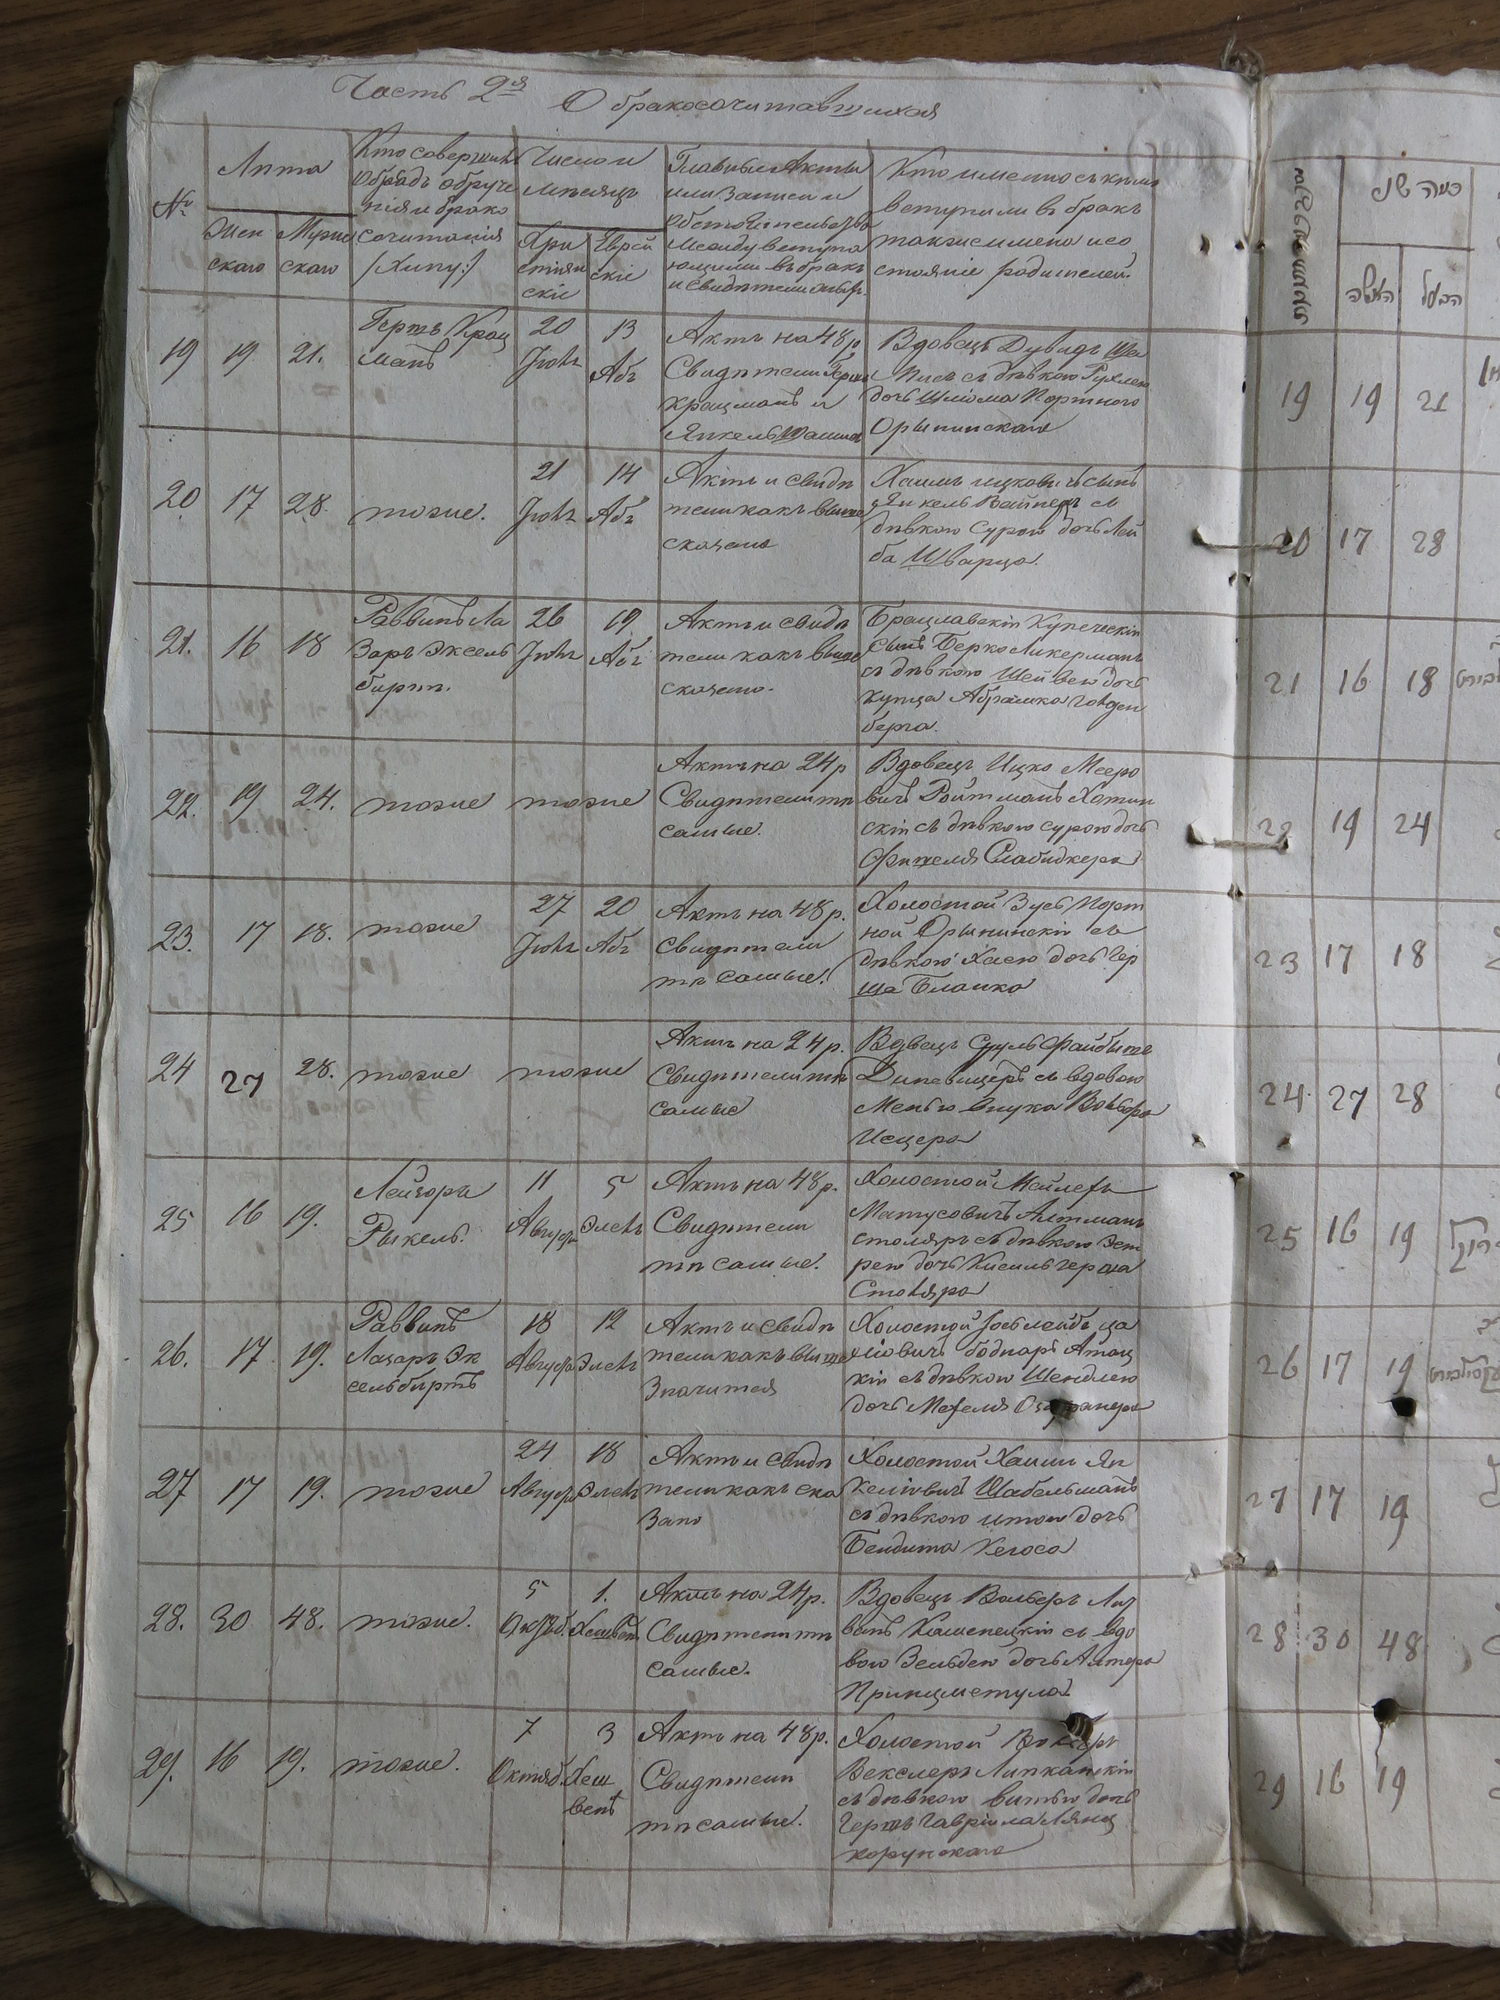 Часть 2я О бракосочитавшихся
№
Лѣта
Женскаго
Мужескаго
Кто совершилъ
обрядъ обруче
нія и брако
сочитанія
/Хипу:/
Число и
мѣсяцъ
Хри
стіян
скіе
Еврей
скіе
Главные Акты
или Записи и
обстоятельства
между вступа
ющими въ бракъ
и свидѣтели
Кто именно съ кѣмъ
вступили въ бракъ
также имена и со
стояніе родителей
19 19 21.
Гершъ Крац
манъ
20
Іюль
13
Абъ
Актъ на 48 р
Свидѣтели Гершъ
Крацманъ и
Янкель
Вдовецъ Дувидъ
съ дѣвкою Рухлею
дочь Шліома Портного
Орынинскаго
20 17 28.
тоже.
21
Іюль
14
Абъ
Актъ и свидѣ
тели какъ выше
сказано
Хаимъ Ицковичъ сынъ
Янкель Вайнеръ съ
дѣвкою Сурою дочь Лей
ба Шварца.
21. 16 18
Раввинъ Ла
заръ Эксель
биртъ.
26
Іюль
19
Абъ
Актъ и свидѣ
тели какъ выше
сказано.
Брацлавскій Купеческій
сынъ Берко Акерманъ
съ дѣвкою Шейвею дочь
купца Абрамка Голден
берга.
22. 19 24.
тоже
тоже
Актъ на 24 р
Свидѣтели тѣ
самые.
Вдовецъ Ицко Мееро
вичъ Ройтманъ Хотин
скій съ дѣвкою Сурою дочь
Фишеля Слабидкера
23. 17 18.
тоже
27
Іюль
20
Абъ
Актъ на 48 р.
Свидѣтели
тѣ самые.
Холостой Зусь Порт
ной Орынинскій съ
дѣвкою Хаею дочь Гер
ша Бланка
24 27 28.
тоже
тоже
Актъ на 24 р.
Свидѣтели тѣ
самые
Вдовецъ Сруль
Дунаевицеръ съ вдовою
внука Вольфа
25 16 19.
Лейзоръ
Рыкель.
11
Августа
5
Элель
Актъ на 48 р.
Свидѣтели
тѣ самые.
Холостой Мейлехъ
Матусовичъ Алтманъ
столяръ съ дѣвкою Эст
рею дочь Кисиль Герша
Столяра
26. 17 19.
Раввинъ
Лазаръ Эк
сельбиртъ
18
Августа
12
Элель
Актъ и свидѣ
тели какъ выше
значится
Холостой Іось Лейбъ
боднаръ Атац
кій съ дѣвкою Шендлею
дочь Мехеля
27 17 19.
тоже
24
Августа
18
Элель
Актъ и свидѣ
тели какъ ска
зано
Холостой Хаимъ Ян
келіовичъ Шабельманъ
съ дѣвкою Итою дочь
Бендита Кегоса
28. 30 48.
тоже.
5
Октяб.
1.
Хешвенъ
Актъ на 24 р.
Свидѣтели тѣ
самые.
Вдовецъ Вольберъ Лит
ванъ Каменецкій съ вдо
вою Зельдею дочь Алтера
Принцметула
29. 16 19.
тоже.
7
Октяб.
3
Хеш
венъ
Актъ на 48 р.
Свидѣтели
тѣ самые.
Холостой
Векслеръ Липканскій
съ дѣвкою Витью дочь
Гершъ Гавріила Лянц
корунскаго
19 19 21
20 17 28
21 16 18
22 19 24
23 17 18
24 27 28
25 16 19
26 17 19
27 17 19
28 30 48
29 16 19